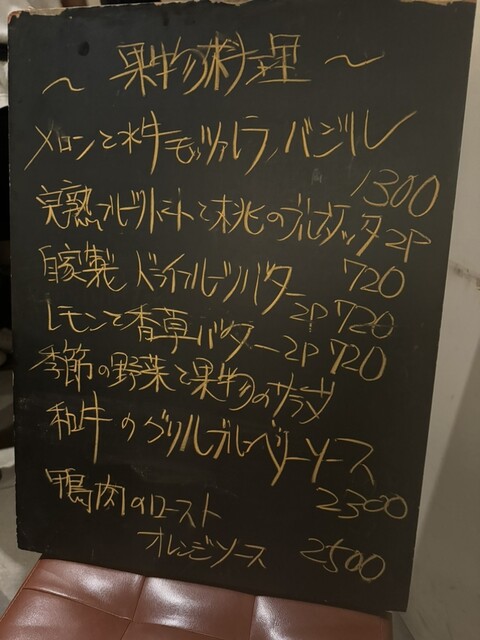 ～ 果物料理 ～
メロンと水牛モッツァレラ、バジル
1300
完熟フルーツトマトと桃のブルスケッタ 2P
720
自家製 ドライフルーツバター
2P 720
レモンと香草バター 2P 720
季節の野菜と果物のサラダ
和牛のグリルブルーベリーソース
2300
鴨肉のロースト
オレンジソース 2500